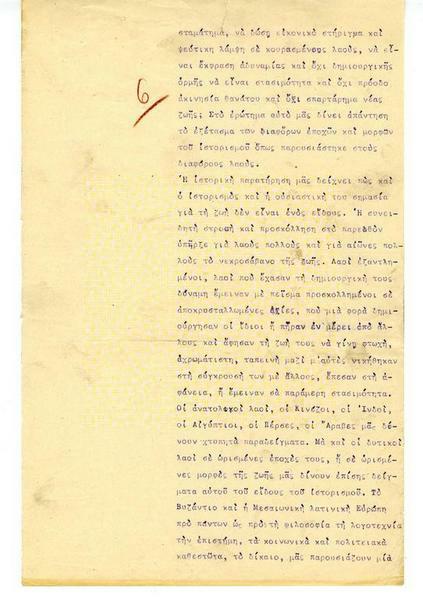 6
σταμάτημα, νὰ δώσῃ εἰκονικὸ στήριγμα καὶ
ψεύτικη λάμψη σὲ κουρασμένους λαούς, νὰ εἶ-
ναι ἔκφραση ἀδυναμίας καὶ ὄχι δημιουργικῆς
ὁρμῆς νὰ εἶναι στασιμότητα καὶ ὄχι πρόοδο
ἀκινησία θανάτου καὶ ὄχι σπαρτάρημα νέας
ζωῆς; Στὸ ἐρώτημα αὐτὸ μᾶς δίνει ἀπάντηση
τὸ ἐξέτασμα τῶν διαφόρων ἐποχῶν καὶ μορφῶν
τοῦ ἱστορισμοῦ ὅπως παρουσιάστηκε στοὺς
διαφόρους λαούς.
Ἡ ἱστορικὴ παρατήρηση μᾶς δείχνει πὼς καὶ
ὁ ἱστορισμὸς καὶ ἡ οὐσιαστική του σημασία
γιὰ τὴ ζωὴ δὲν εἶναι ἑνὸς εἴδους. Ἡ συνει-
δητὴ στροφὴ καὶ προσκόλληση στὸ παρελθὸν
ὑπῆρξε γιὰ λαοὺς πολλοὺς καὶ γιὰ αἰῶνες πολ-
λοὺς τὸ νεκροσάβανο τῆς ζωῆς. Λαοὶ ἐξαντλη-
μένοι, λαοὶ ποὺ ἔχασαν τὴ δημιουργική τους
δύναμη ἔμειναν μὲ πεῖσμα προσκολλημένοι σὲ
ἀποκρυσταλλωμένες ἀξίες, ποὺ μιὰ φορὰ δημι-
ούργησαν οἱ ἴδιοι ἢ πῆραν ἐν μέρει ἀπὸ ἄλ-
λους καὶ ἄφησαν τὴ ζωή τους νὰ γίνῃ φτωχή,
ἀχρωμάτιστη, ταπεινὴ μαζὶ μ'αὐτὲς νικήθηκαν
στὴ σύγκρουσή των μὲ ἄλλους, ἔπεσαν στὴ ἀ-
φάνεια, ἢ ἔμειναν σὲ παράμερη στασιμότητα.
Οἱ ἀνατολικοὶ λαοί, οἱ Κινέζοι, οἱ Ἰνδοί,
οἱ Αἰγύπτιοι, οἱ Πέρσες, οἱ Ἄραβες μᾶς δί-
νουν χτυπητὰ παραδείγματα. Μὰ καὶ οἱ δυτικοὶ
λαοὶ σὲ ὡρισμένες ἐποχές τους, ἢ σὲ ὡρισμέ-
νες μορφὲς τῆς ζωῆς μᾶς δίνουν ἐπίσης δείγ-
ματα αὐτοῦ τοῦ εἴδους τοῦ ἱστορισμοῦ. Τὸ
Βυζάντιο καὶ ἡ Μεσαιωνικὴ λατινικὴ Εὐρώπη
πρὸ πάντων ὡς πρὸ τὴ φιλοσοφία τὴ λογοτεχνία
τὴν ἐπιστήμη, τὰ κοινωνικὰ καὶ πολιτειακὰ
καθεστῶτα, τὸ δίκαιο, μᾶς παρουσιάζουν μία